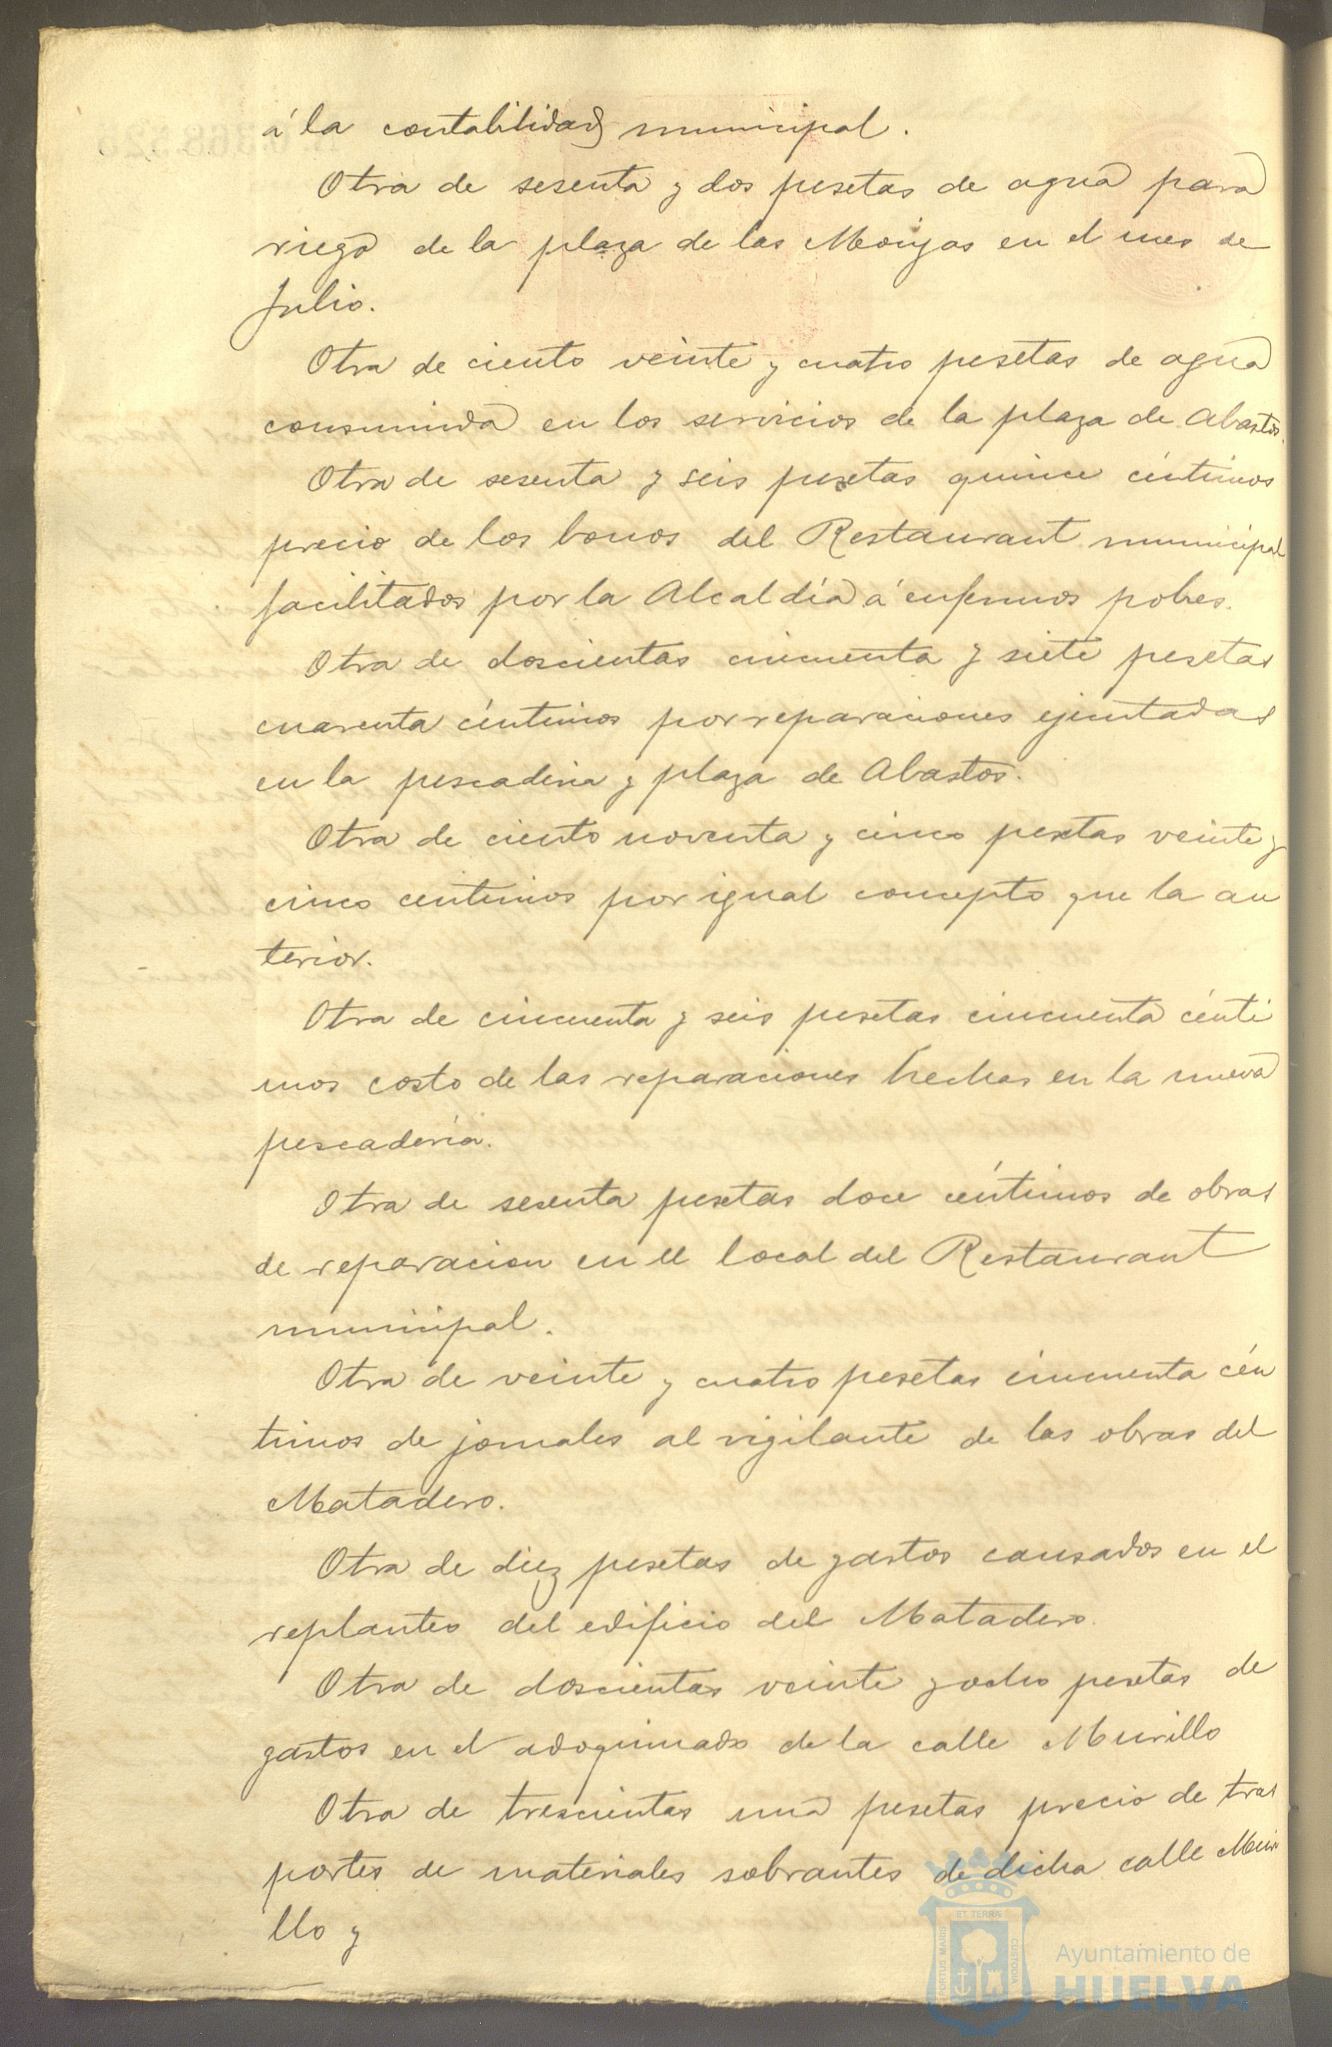 á la contabilidad municipal.
Otra de sesenta y dos pesetas de agua para
riego de la plaza de las Monjas en el mes de
Julio.
Otra de ciento veinte y cuatro pesetas de agua
consumida en los servicios de la plaza de Abastos.
Otra de sesenta y seis pesetas quince céntimos
precio de los bonos del Restaurant municipal
facilitados por la Alcaldía á enfermos pobres.
Otra de doscientas cincuenta y siete pesetas
cuarenta céntimos por reparaciones ejecutadas
en la pescaderia y plaza de Abastos.
Otra de ciento noventa y cinco pesetas veinte y
cinco centimos por igual concepto que la an
terior.
Otra de cincuenta y seis pesetas cincuenta cénti
mos costo de las reparaciones hechas en la nueva
pescadería.
Otra de sesenta pesetas doce céntimos de obras
de reparacion en el local del Restaurant
municipal.
Otra de veinte y cuatro pesetas cincuenta cén
timos de jornales al vigilante de las obras del
Matadero.
Otra de diez pesetas de gastos causados en el
replanteo del edificio del Matadero.
Otra de doscientas veinte y ocho pesetas de
gastos en el adoquinado de la calle Murillo
Otra de trescientas una pesetas precio de tras
portes de materiales sobrantes de dicha calle Muri
llo y
ET TERRÆ
PORTUS MARIS
CUSTODIA
Ayuntamiento de
HUELVA